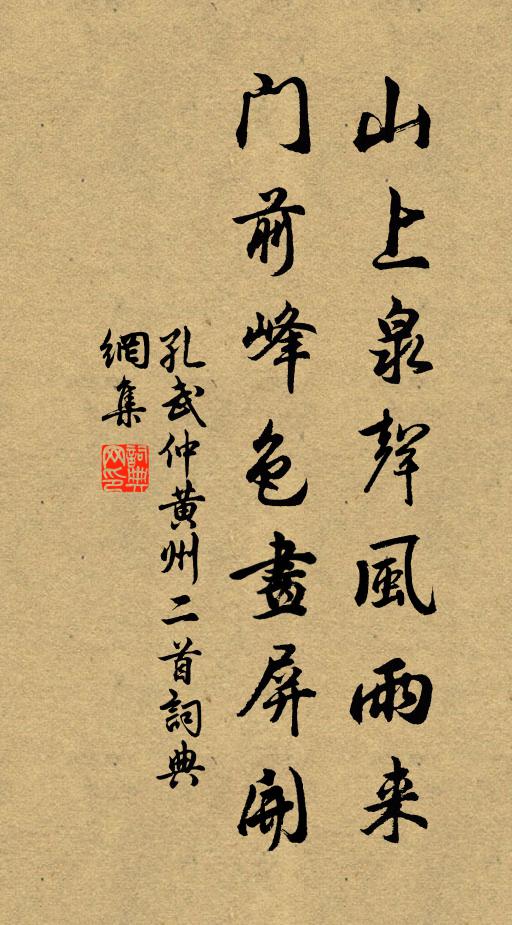 山上泉聲風雨来
门前峰色畫屏開
孔武仲黄州二首詞典
網集
詞典网印